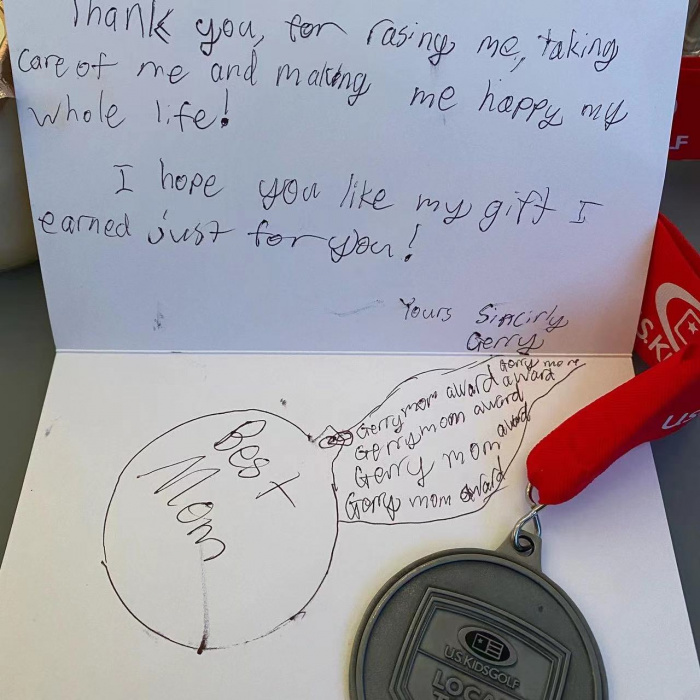 Thank you, for rasing me, taking
care of me and making me happy my
whole life!
I hope you like my gift I
earned just for you!
Yours Sincirly
Gerry
Best
Mom
Gerry mom award
Gerry mom award
Gerry mom award
Gerry mom award
U.S.KIDSGOLF
LF
S.K
U.S